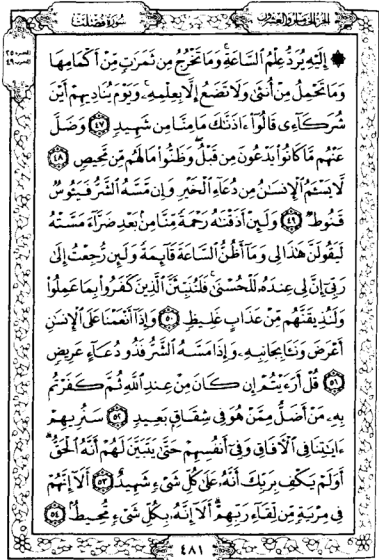 سورة فصلت
الجزء الخامس والعشرون
الحزب ٢٥
الحزب ٤٩
۞ إِلَيْهِ يُرَدُّ عِلْمُ السَّاعَةِ وَمَا تَخْرُجُ مِن ثَمَرَٰتٍ مِّنْ أَكْمَامِهَا
وَمَا تَحْمِلُ مِنْ أُنثَىٰ وَلَا تَضَعُ إِلَّا بِعِلْمِهِۦ وَيَوْمَ يُنَادِيهِمْ أَيْنَ
شُرَكَآءِى قَالُوٓا۟ ءَاذَنَّٰكَ مَا مِنَّا مِن شَهِيدٍ ٤٧ وَضَلَّ
عَنْهُم مَّا كَانُوا۟ يَدْعُونَ مِن قَبْلُ وَظَنُّوا۟ مَا لَهُم مِّن مَّحِيصٍ ٤٨
لَّا يَسْـَٔمُ الْإِنسَٰنُ مِن دُعَآءِ الْخَيْرِ وَإِن مَّسَّهُ الشَّرُّ فَيَـُٔوسٌ
قَنُوطٌ ٤٩ وَلَئِنْ أَذَقْنَٰهُ رَحْمَةً مِّنَّا مِنۢ بَعْدِ ضَرَّآءَ مَسَّتْهُ
لَيَقُولَنَّ هَٰذَا لِى وَمَآ أَظُنُّ السَّاعَةَ قَآئِمَةً وَلَئِن رُّجِعْتُ إِلَىٰ
رَبِّىٓ إِنَّ لِى عِندَهُۥ لَلْحُسْنَىٰ فَلَنُنَبِّئَنَّ الَّذِينَ كَفَرُوا۟ بِمَا عَمِلُوا۟
وَلَنُذِيقَنَّهُم مِّنْ عَذَابٍ غَلِيظٍ ٥٠ وَإِذَآ أَنْعَمْنَا عَلَى الْإِنسَٰنِ
أَعْرَضَ وَنَـَٔا بِجَانِبِهِۦ وَإِذَا مَسَّهُ الشَّرُّ فَذُو دُعَآءٍ عَرِيضٍ
٥١ قُلْ أَرَءَيْتُمْ إِن كَانَ مِنْ عِندِ اللَّهِ ثُمَّ كَفَرْتُم
بِهِۦ مَنْ أَضَلُّ مِمَّنْ هُوَ فِى شِقَاقٍۭ بَعِيدٍ ٥٢ سَنُرِيهِمْ
ءَايَٰتِنَا فِى الْءَافَاقِ وَفِىٓ أَنفُسِهِمْ حَتَّىٰ يَتَبَيَّنَ لَهُمْ أَنَّهُ الْحَقُّ
أَوَلَمْ يَكْفِ بِرَبِّكَ أَنَّهُۥ عَلَىٰ كُلِّ شَىْءٍ شَهِيدٌ ٥٣ أَلَآ إِنَّهُمْ
فِى مِرْيَةٍ مِّن لِّقَآءِ رَبِّهِمْ أَلَآ إِنَّهُۥ بِكُلِّ شَىْءٍ مُّحِيطٌۢ ٥٤
٤٨١